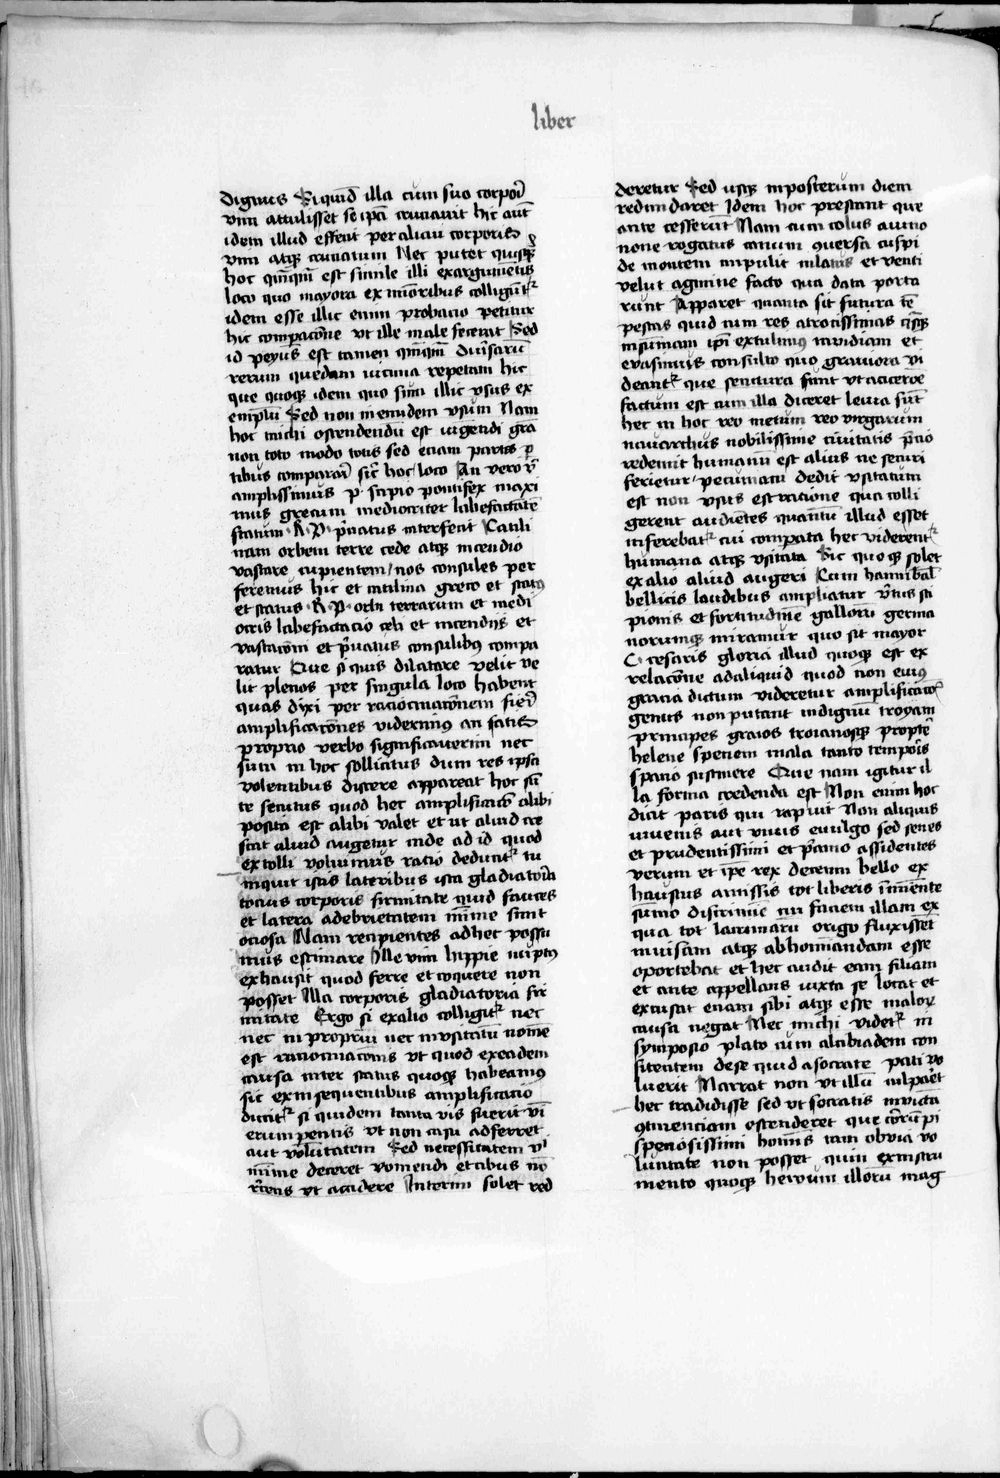 liber
digitus Si quid illa cum suo corpori
vim attulisset se ipsa cruciavit hic aut
idem illud effecit per aliam corporis
vim atque cruciatum Nec putet quisque
hoc quamquam est simile illi ex argumentis
loco quo mayora ex minoribus colliguntur
idem esse illic enim probacio petitur
hic comparacione ut ille male fecerit Sed
id peyus est tamen quamquam diversarum
rerum quedam vicinia repetam hic
que quoque idem quo sum illic usus ex
emplum Sed non in eundem usum Nam
hoc michi ostendendum est augendi gratia
non toto modo totis sed etiam partes par
tibus comparari sicut hoc loco An vero vir
amplissimus P scipio pontifex maxi
mus grecum mediocriter labefactantem
statum R P privatus interfecit Catili
nam orbem terre cede atque incendio
vastare cupientem nos consules per
feremus hic et catilina greco et status
et status R P orbi terrarum et medi
ocris labefactacio cedi et incendiis et
vastacioni et privatus consulibus compa
ratur Que si quis dilatare velit ve
lit plenos per singula loco habent
quas dixi per raciocinacionem fieri
amplificaciones viderimus an satis
proprio verbo significaverim nec
sum in hoc sollicitus dum res ipsa
volentibus discere appareat hoc sum
te secutus quod hec amplificacio alibi
posita est alibi valet et ut aliud cre
scat aliud augetur inde ad id quod
extolli volumus ratio deducitur tu
inquit istis lateribus ista gladiatoria
tocius corporis firmitate quid fauces
et latera ad ebrietatem minime sunt
ociosa Nam recipientes ad hec possu
mus estimare Ille vini hippie nuptiis
exhausit quod ferre et coquere non
posset illa corporis gladiatoria fir
mitate Ergo si ex alio colligitur nec
nec in proprium nec inusitatum nomen
est raciocinacionis ut quod ex eadem
causa inter status quoque habeamus
sic ex insequentibus amplificacio
dicitur si quidem tanta vis fuerit vini
erumpentis ut non casu adferret
aut voluntatem Sed necessitatem ubi
minime deceret vomendi et cibus non
recens ut accidere Interim solet red
deretur Sed usque in posterum diem
redundaret Idem hoc prestant que
ante cesserunt Nam cum eolus a iuno
none rogatus cavum conversa cuspi
de montem impulit in latus et venti
velut agmine facto qua data porta
runt Apparet quanta sit futura tem
pestas quid cum res atrocissimas
in summam ipsi extulimus invidiam et
evasimus consulto quo graviora vi
deantur que secutura sunt ut a cicerone
factum est cum illa diceret levia sunt
hec in hoc reo metum reo virgarum
navarchus nobilissime civitatis precio
redemit humanum est alius ne securi
ferietur pecuniam dedit usitatum
est non usus est ratione qua colli
gerent audientes quantum illud esset
inferebatur cui comparata hec viderentur
humana atque usitata Sic quoque solet
ex alio aliud augeri Cum hannibal
bellicis laudibus ampliatur virtus sci
pionis et fortitudinem gallorum germa
norumque miramur quo sit mayor
C cesaris gloria illud quoque est ex
relacione ad aliquid quod non eius
gracia dictum videretur amplificacionis
genus non putant indignum troyani
principes graios troianosque propter
helene speciem mala tanto temporis
spacio sustinere Que nam igitur il
la forma credenda est Non enim hoc
dicit paris qui rapuit Non aliquis
iuvenis aut unus e vulgo sed senes
et prudentissimi et priamo assidentes
verum et ipse rex decenni bello ex
haustus amissis tot liberis imminente
summo discrimine cui faciem illam ex
qua tot lacrimarum origo fluxisset
invisam atque abhominandam esse
oportebat et hec audit eam filiam
et ante appellans iuxta se locat et
excusat etiam sibi atque esse malorum
causa negat Nec michi videtur in
symposio plato cum alcibiadem con
fitentem de se quid a socrate pati vo
luerit Narrat non ut illum culparet
hec tradidisse sed ut socratis invictam
continenciam ostenderet que corrumpi
speciosissimi hominis tam obvia vo
luntate non posset quin ex instru
mento quoque heroum illorum mag